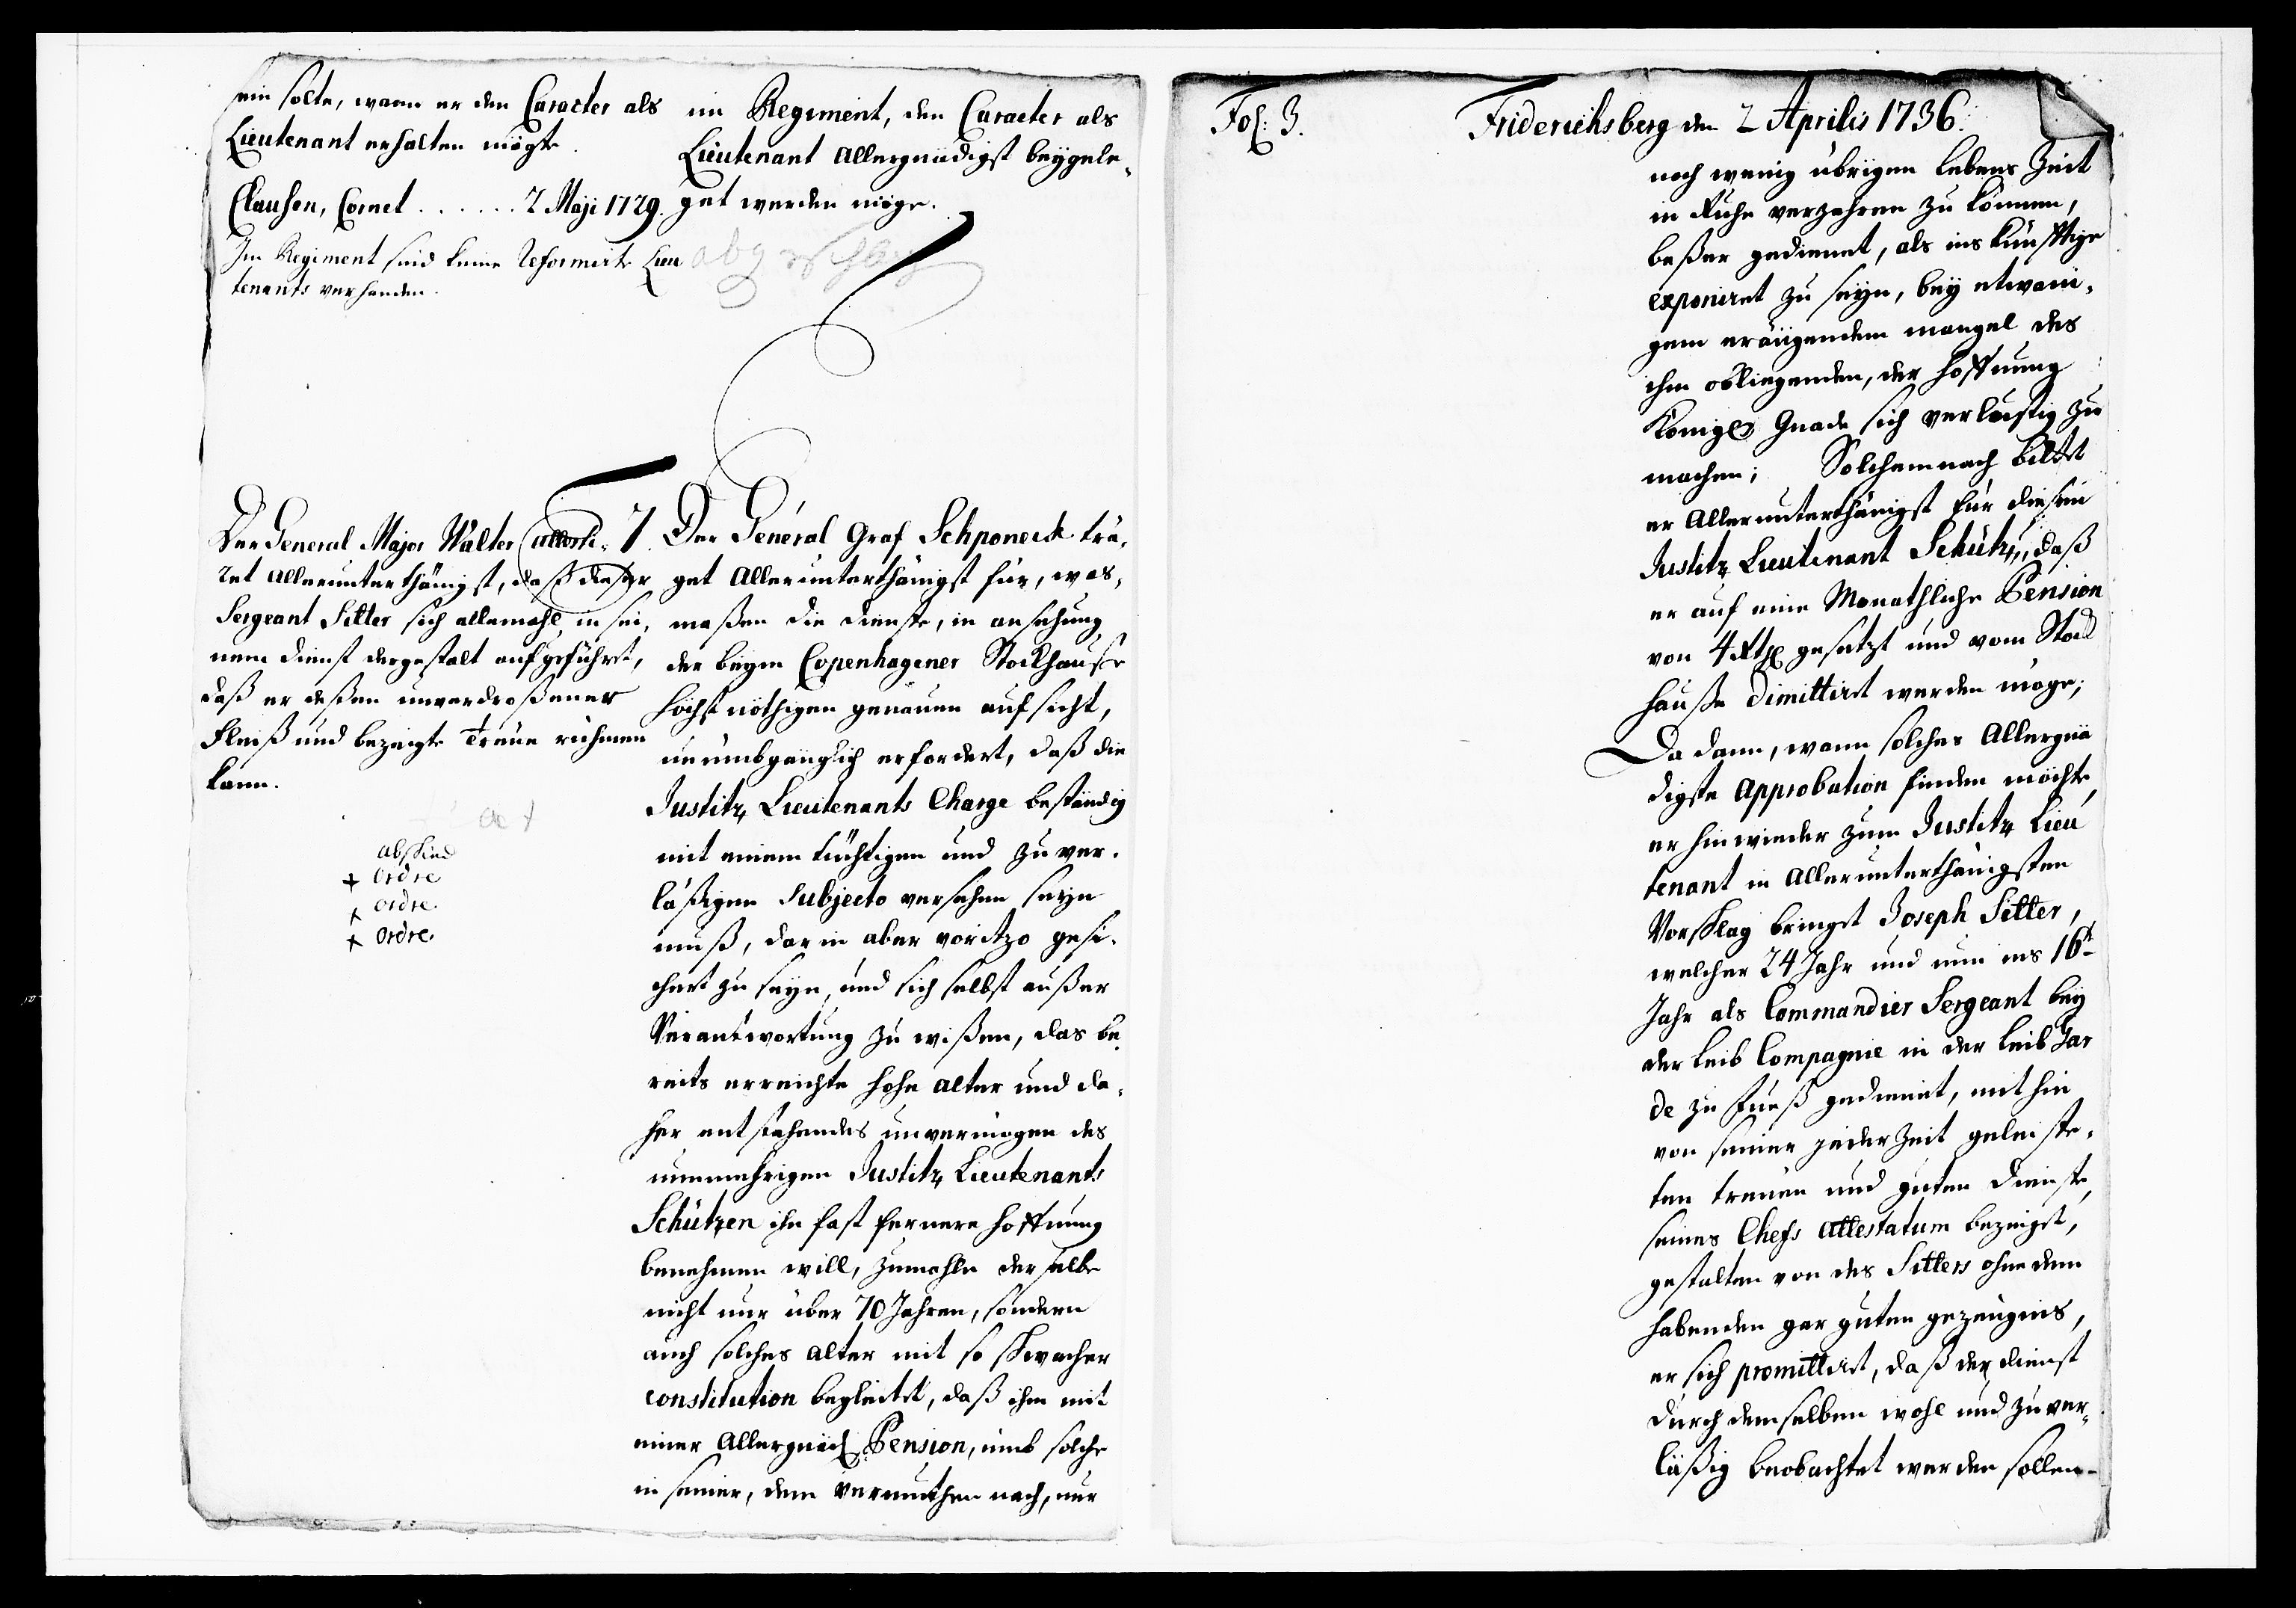 sein solte, wann er den Caracter als
Lieutenant erhalten mögte.
Clausen, Cornet ...... 2 Maji 1729.
Im Regiment sind keine Reformirte Lieu
tenants verhanden.
im Regiment, den Caracter als
Lieutenant Allergnädigst beygele-
get werden möge.
Der General Major Walter attesti-
ret allerunterthänigst, daß dieser
Sergeant Sitter sich allemahl in sei-
nem dienst dergestalt aufgeführt,
daß er deßen unverdroßener
Fleiß und bezeigte Treue rühmen
kann.
act
abskied
+ Ordre
+ ordre.
+ Ordre.
7. Der Général Graf Schponeck trä-
get Allerunterthänigst für, was-
maßen die dienste, in ansehung
der beym Copenhagener Stockhause
höchstnöthigen genauen aufsicht,
unumbgänglich erfordert, daß die
Justitz Lieutenants Charge beständig
mit einem tüchtigen und zuver-
läßigen Subjecto versehen seyn
muß, darin aber voritzo gesi-
chert zu seyn, und sich selbst außer
Verantwortung zu wißen, das be-
reits erreichte hohe alter und da-
her entstehendes unvermögen des
nunmehrigen Justitz Lieutenants
Schützen ihn fast fernere hoffnung
benehmen will, zumahle derselbe
nicht nur über 70 Jahren, sondern
auch solches alter mit so schwacher
constitution begleitet, daß ihm mit
einer Allergnäd: Pension, umb solche
in seiner, dem vermuthen nach, nur
Fol: 3.
Friderichsberg den 2 Aprilis 1736.
noch wenig übrigen lebens Zeit
in Ruhe verzehren zu können,
beßer gedienet, als ins künfftige
exponiret zu seyn, bey etwani-
gem eräugendem mangel des
ihm obliegenden, der hoffnung
Königl: Gnade sich verlustig zu
machen; Solchemnach bittet
er Allerunterthänigst für diesen
Justitz Lieutenant Schütz, daß
er auf eine Monathliche Pension
von 4 Rthl gesetzt und vom Stock
hause dimittiret werden möge;
Da dann, wann solches Allergnä
digste Approbation finden möchte,
er hinwieder zum Justitz Lieu
tenant in Allerunterthänigsten
Vorschlag bringet Joseph Sitter,
welcher 24 Jahr und nun ins 16te
Jahr als Commandier Sergeant bey
der Leib Compagnie in der Leib Gar
de zu Fueß gedienet, mithin
von seiner jederzeit geleiste-
ten treuen und guten dienste,
seines Chefs Attestatum bezeiget,
gestalten von des Sitters ohne dem
habenden gar guten gezeugnis,
er sich promittiret, daß der dienst
durch demselben wohl und zuver-
läßig beobachtet werden sollen.